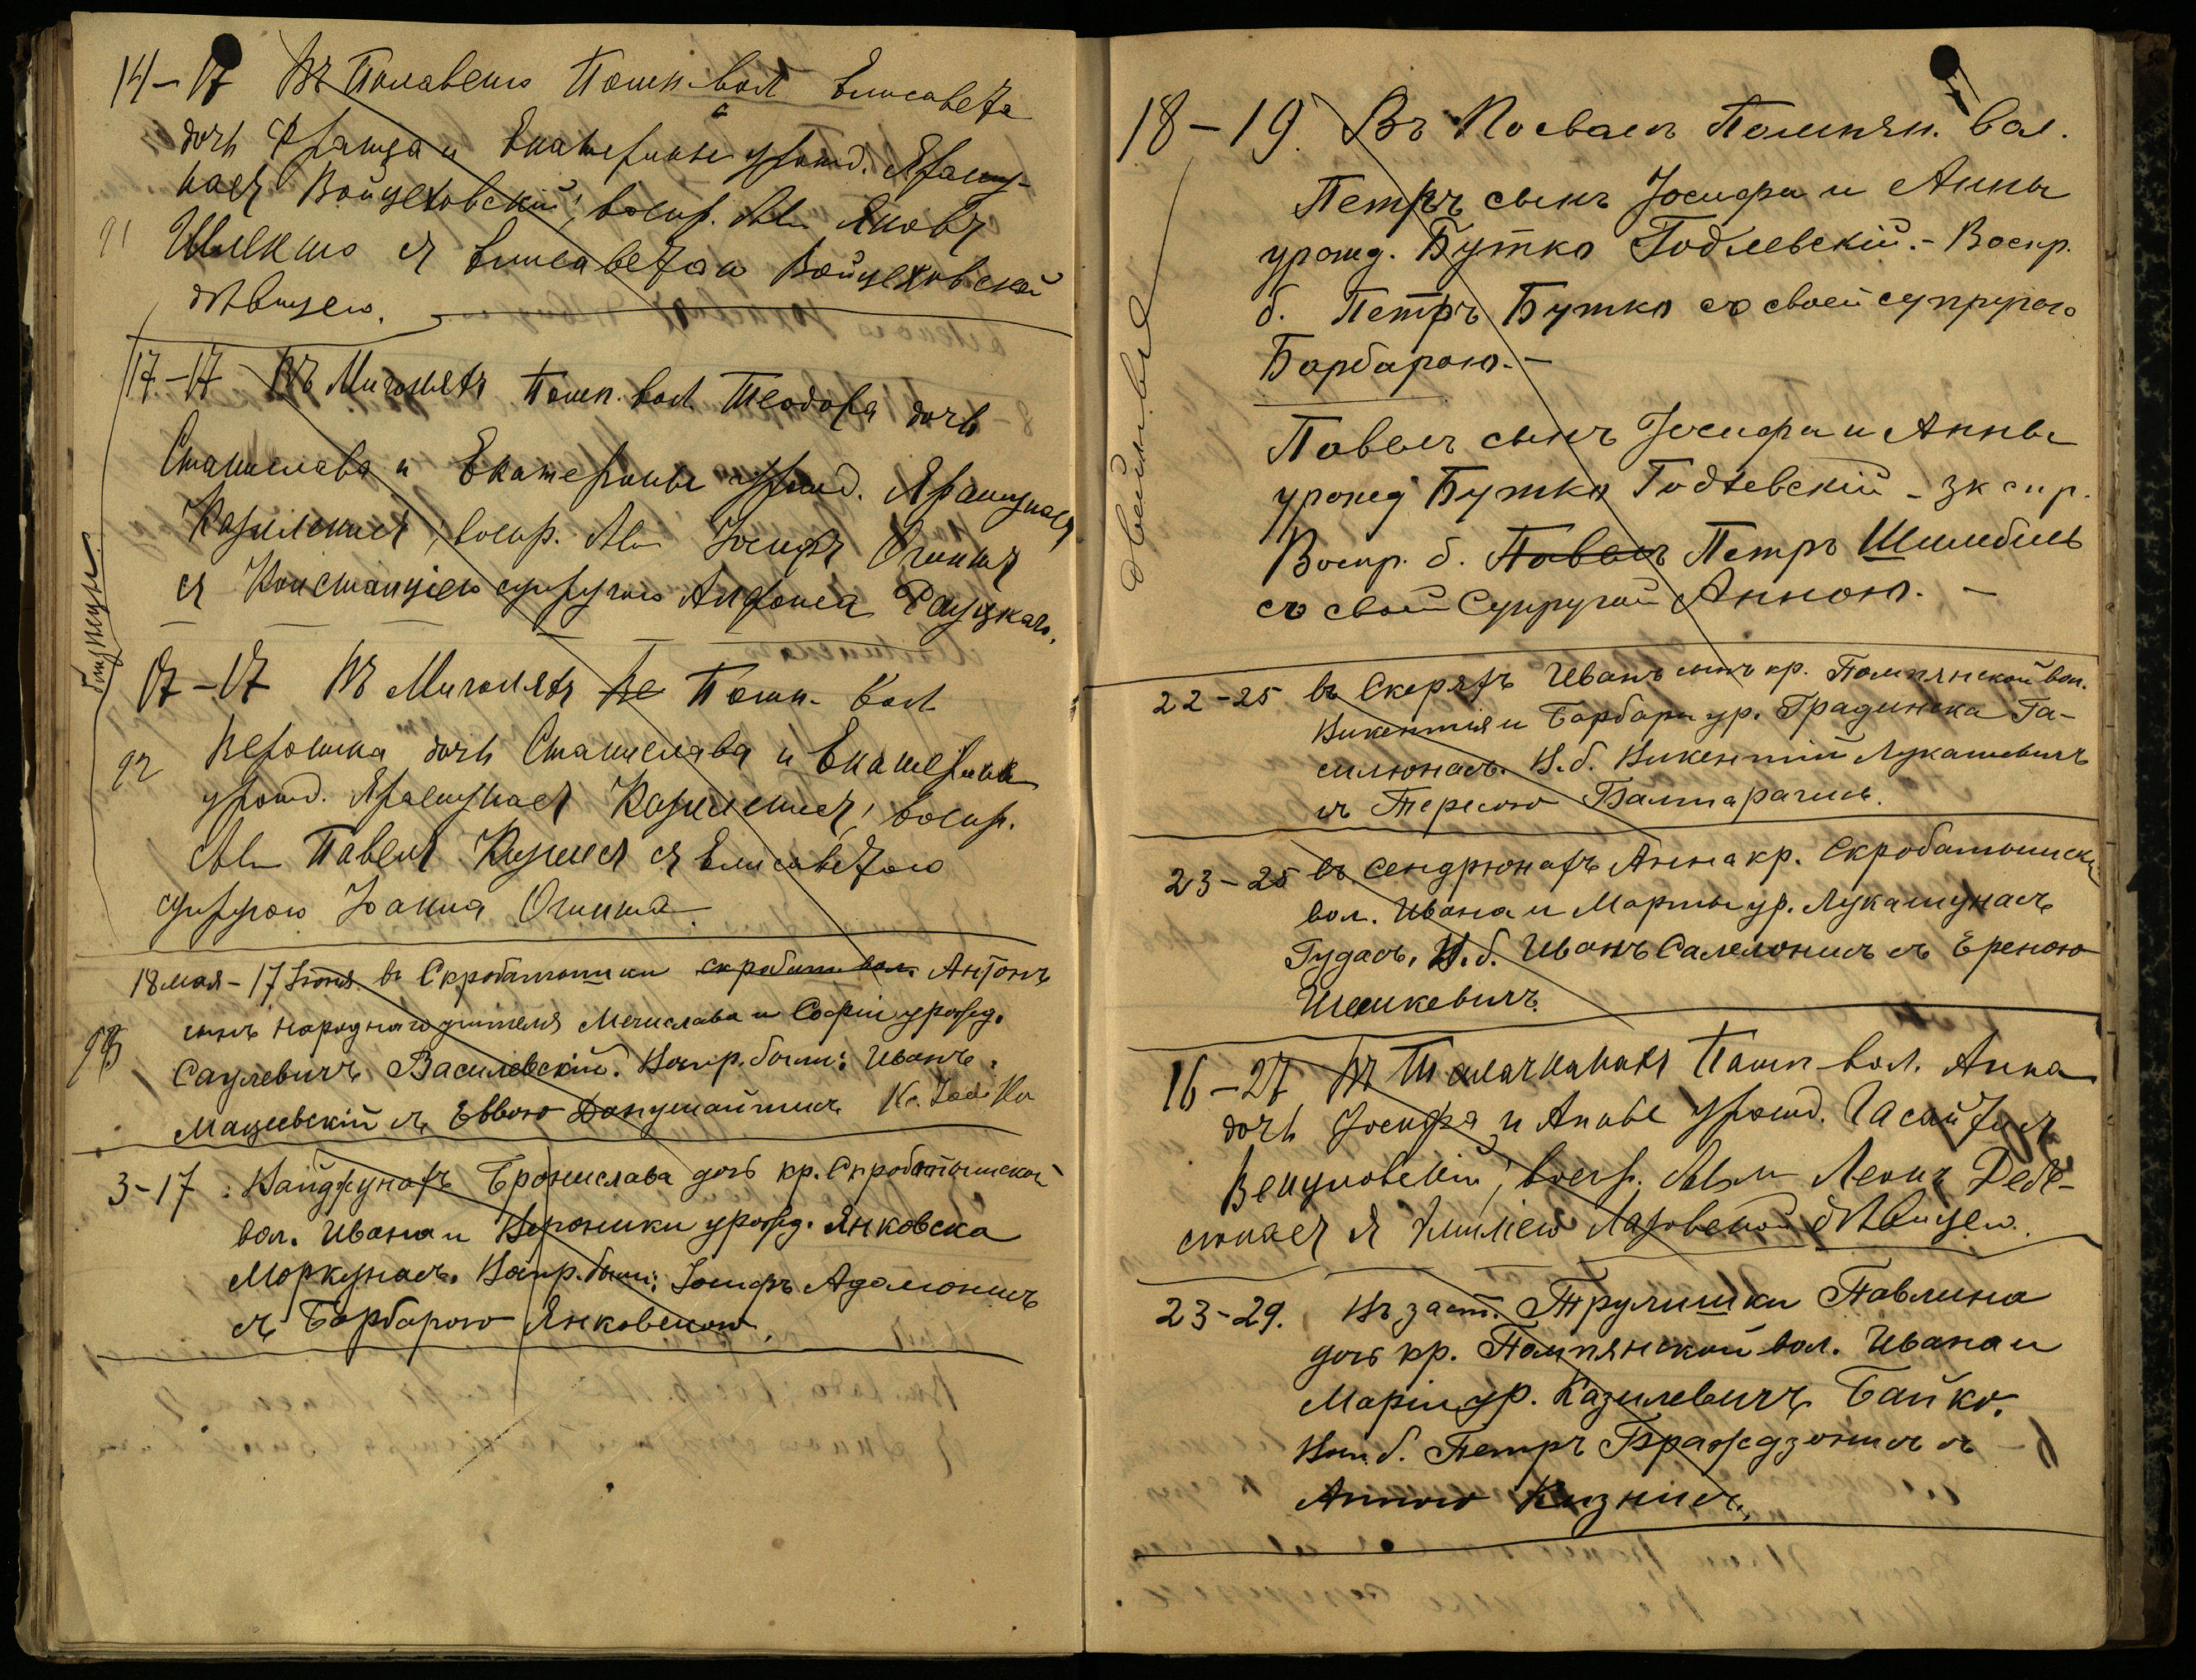 14-17 Въ Пакавеню Помп. вол Елисавета
дочь Франца и Екатерины урожд. Ярашу-
насъ Войцеховскій; воспр. были Яковъ
91 Шлекшо съ Елисаветою Войцеховской
дѣвицею.
близнецы
17-17 Въ Мигоняхъ Помп. вол. Теодора дочь
Станислава и Екатерины урожд. Ярашунасъ
Казиленисъ; воспр. были Іосифъ
съ Констанціею супругою Альфонса Рауцкаго.
17-17 Въ Мигоняхъ Ве Помп. вол
92 Вероника дочь Станислава и Екатерины
урожд. Ярашунасъ Казиленисъ; воспр.
были Павелъ съ Елисаветою
супругою Іоанна
18 мая-17 Іюня въ Скробатышки скробатыш. вол. Антонъ
93 сынъ народнаго учителя Мечислава и Софіи урожд.
Саулевичъ Василевскій. Воспр. были: Иванъ
Мацеевскій съ Еввою
3-17. Вайджунахъ Бронислава дочь кр. Скробатышской
вол. Ивана и Вероники урожд. Янковска
Моркунасъ. Воспр. были: Іосифъ Адамонисъ
съ Барбарою Янковскою.
18-19. Въ Посваль Помпян. вол.
двойневыя
Петръ сынъ Іосифа и Анны
урожд. Бутко Годлевскій. - Воспр.
б. Петръ Бутко со своей супругою
Барбарою. -
Павелъ сынъ Іосифа и Анны
урожд Бутко Годлевскій -
Воспр. б. Павелъ Петръ Шимбель
со свой Супругой Анною. -
22-25 въ Скеряхъ Иванъ сынъ кр. Помпянской вол.
Викентія и Барбары ур. Градинска Га-
силюнасъ. В. б. Викентій Лукашевичъ
съ Тересою Балтарагисъ.
23-25 въ Сендрюнахъ Анна кр. Скробатышской
вол. Ивана и Марты ур. Лукашунасъ
Гудасъ. В. б. Иванъ Саламонисъ съ Ереною
16-27 Въ Помп вол. Анна
дочь Іосифа и Анны урожд.
воспр. были Леонъ Деве-
с Эмиліею Лазовской дѣвицею.
23-29. Въ заст. Трумишки Павлина
дочь кр. Помпянской вол. Ивана и
Маріи ур. Казилевичъ Байко.
Восп. б. Петръ Бражджонисъ съ
Анною Кизнисъ.